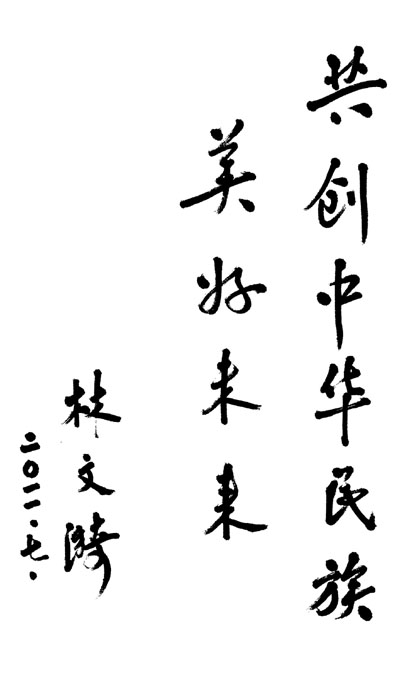 共创中华民族
美好未来
林文漪
二〇一一·七·